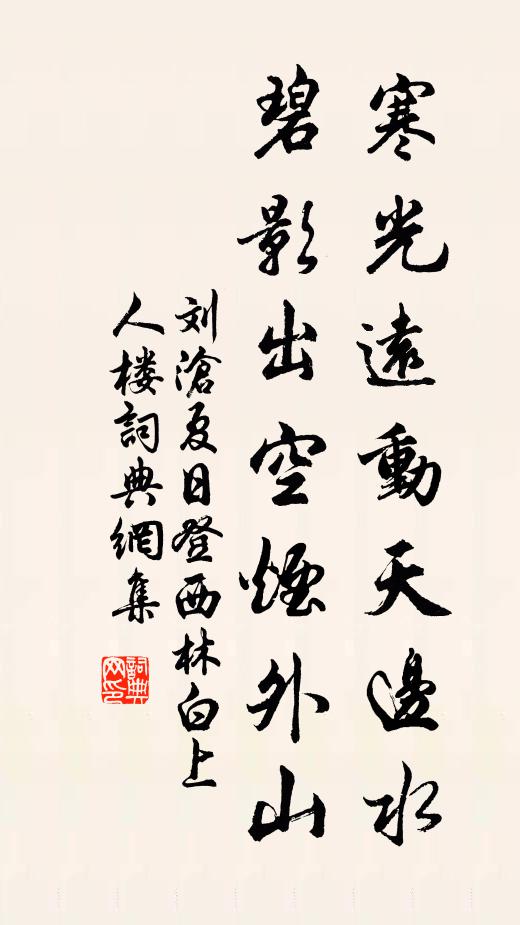 寒光遠動天邊水
碧影出空煙外山
刘滄夏日登西林白上
人楼詞典網集
詞典网印